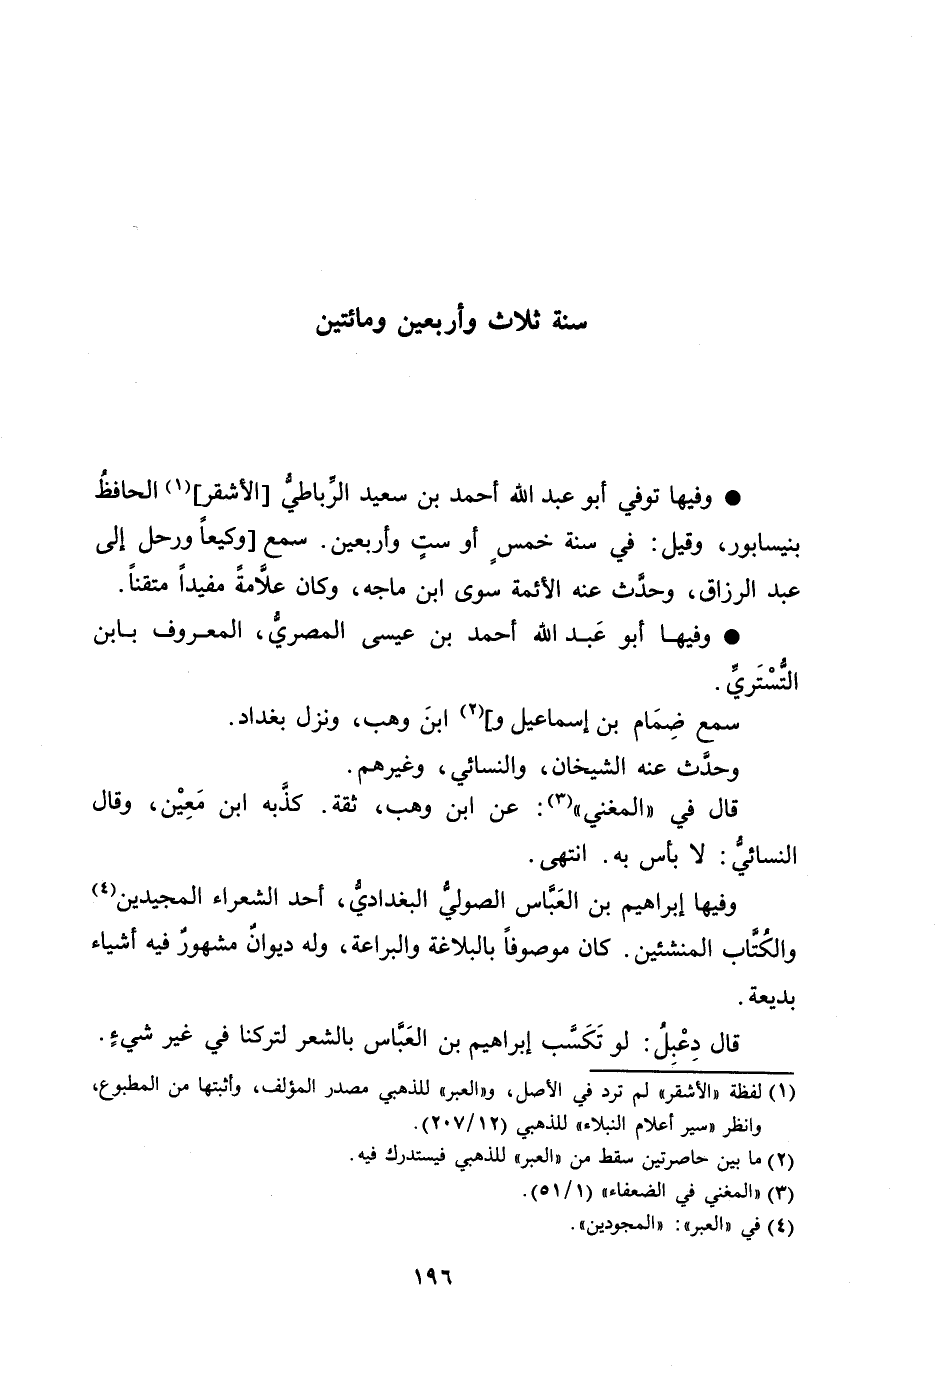 سنة ثلاث وأربعين ومائتين
● وفيها توفي أبو عبد الله أحمد بن سعيد الرِّباطيُّ [الأشقر](١) الحافظُ
بنيسابور، وقيل: في سنة خمسٍ أو ستٍ وأربعين. سمع [وكيعاً ورحل إلى
عبد الرزاق، وحدَّث عنه الأئمة سوى ابن ماجه، وكان علَّامةً مفيداً متقناً.
● وفيها أبو عَبد الله أحمد بن عيسى المصريُّ، المعروف بابن
التُّسْتَريِّ.
سمع ضِمَام بن إسماعيل و](٢) ابنَ وهب، ونزل بغداد.
وحدَّث عنه الشيخان، والنسائي، وغيرهم.
قال في «المغني»(٣): عن ابن وهب، ثقة. كذَّبه ابن مَعِيْن، وقال
النسائيُّ: لا بأس به. انتهى.
وفيها إبراهيم بن العَبَّاس الصوليُّ البغداديُّ، أحد الشعراء المجيدين(٤)
والكُتَّاب المنشئين. كان موصوفاً بالبلاغة والبراعة، وله ديوانٌ مشهورٌ فيه أشياء
بديعة.
قال دِعْبِلُ: لو تَكَسَّب إبراهيم بن العَبَّاس بالشعر لتركنا في غير شيءٍ.
(١) لفظة «الأشقر» لم ترد في الأصل، و«العبر» للذهبي مصدر المؤلف، وأثبتها من المطبوع،
وانظر «سير أعلام النبلاء» للذهبي (٢٠٧/١٢).
(٢) ما بين حاصرتين سقط من «العبر» للذهبي فيستدرك فيه.
(٣) «المغني في الضعفاء» (٥١/١).
(٤) في «العبر»: «المجودين».
١٩٦